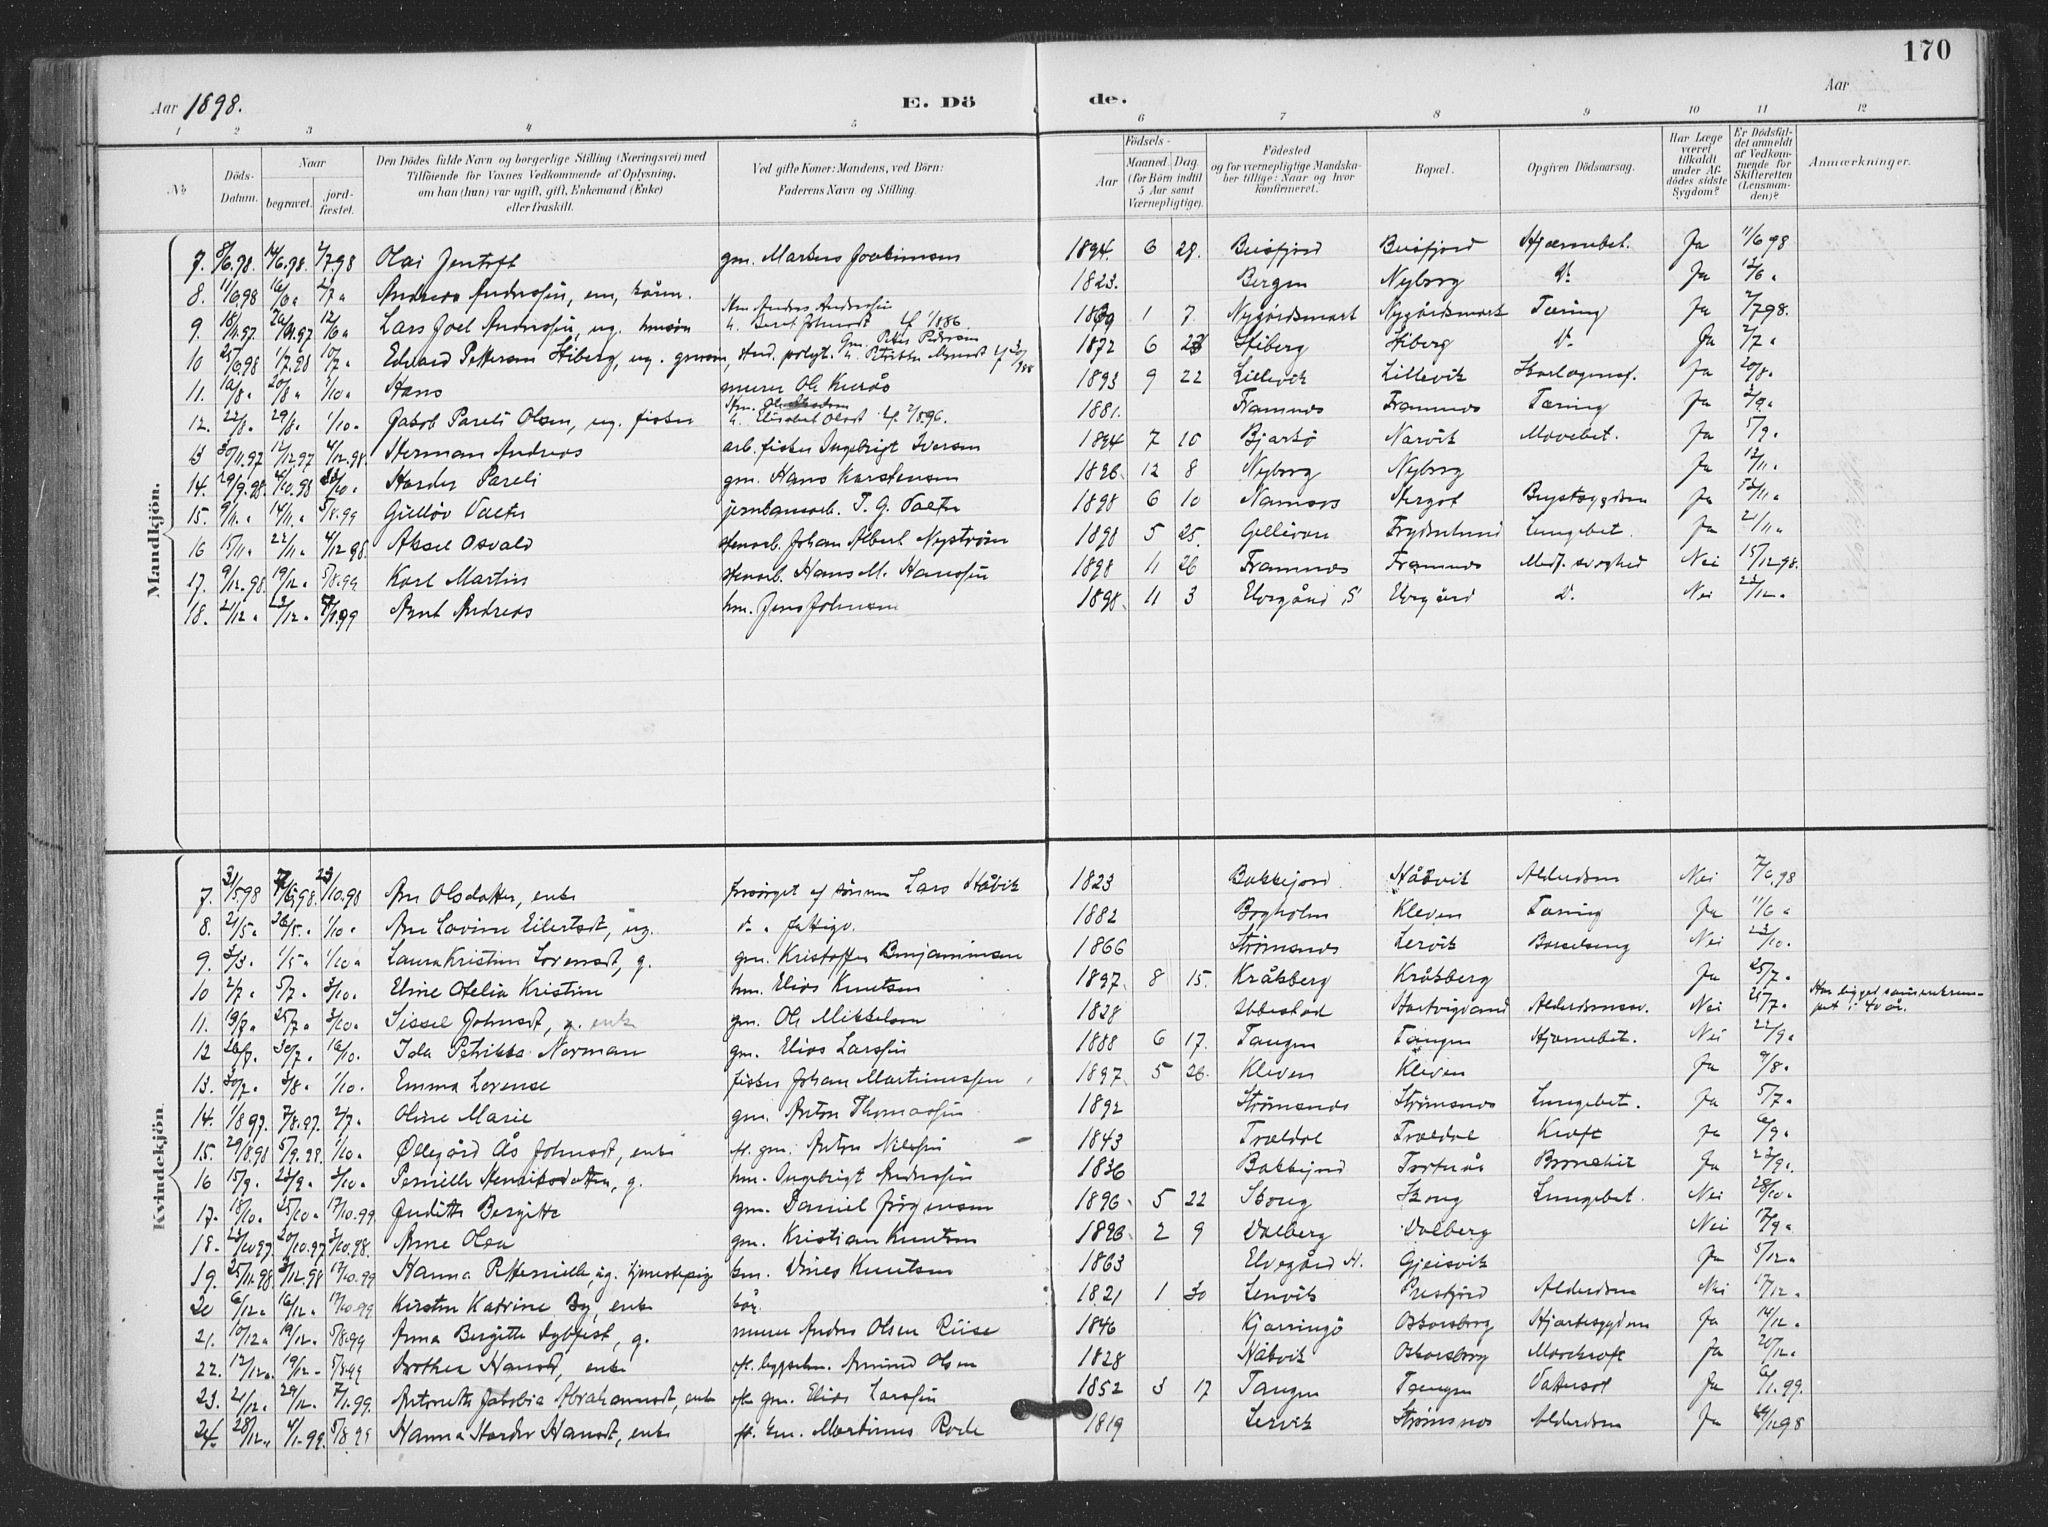 170
Aar 1898. E. Dö de. Aar
1 2 3 4 5 6 7 8 9 10 11 12
No Döds-Datum. Naar begravet. jord-fæstet. Den Dödes fulde Navn og borgerlige Stilling (Næringsvei) med Tilföiende for Voxnes Vedkommende af Oplysning, om han (hun) var ugift, gift, Enkemand (Enke) eller fraskilt. Ved gifte Koner: Mandens, ved Börn: Faderens Navn og Stilling. Födsels- Aar Maaned. Dag. (for Börn indtil 5 Aar samt Værnepligtige). Födested og for værnepligtige Mandska-ber tillige: Naar og hvor konfirmeret. Bopæl. Opgiven Dödsaarsag. Har Læge været tilkaldt under Af-dödes sidste Sygdom? Er Dödsfal-det anmeldt af Vedkom-mende for Skifteretten (Lensman-den)? Anmærkninger.
Mandkjön.
7. 8/6.98. 14/6.98. 2/7.98 Olai Jentoft gm. Martens Joakimsen 1894. 6 28. Beisfjord Beisfjord Hjernebet. Ja 11/6 98
8. 11/6.98 16/6 " 2/7 " Andreas Andersen, em, kårm. 1823. Bergen Nyborg Do Ja 12/6 "
9. 18/11.97. Lars Joel Andersen, ug. hussøn Hm Anders Andersen 1 7 Nygårdsmark Nygårdsmark Tæring Ja 2/7 98.
10 25/6.98 1/7.98 10/7 " Edvard Pettersen Stiberg, ug. grmsøn, stud. polyt. Gm. Peter Pedersen 1872 6 Stiberg Stiberg Do Ja 2/7 "
11. 10/8 " 20/8 " 1/10 " Hans murer Ole Kurås 1893 9 22 Lillevik Lillevik Skarlagensf. Ja 20/8 "
12. 22/8 " 29/8 " 1/10 " Jakob Pareli Olsen, ug. fisker 1881. Framnes Framnes Tæring Ja 2/9 "
13 30/11.97 12/12.97 4/12.98. Herman Andreas arb. fisker Ingebrigt Iversen 1894 7 10 Bjarkø Narvik Mavebet. Ja 5/9 "
14. 29/9.98. 4/10.98 Hardy Pareli gm. Hans Karstensen 1896. 12 8 Nyborg Nyborg Ja 12/11 "
15. 9/11 " 14/11 " 5/8.99 Gulløv Valter jernbanearb. T. G. Valter 1898 6 10 Namsos Brystsygdom Ja 12/11 "
16 15/11 " 22/11 " 4/12.98. Aksel Osvald stenarb. Johan Albert Nystrøm 1898 5 25. Gellivare Frydenlund Lungebet. Ja 21/11 "
17. 9/12.98. 19/12 " 5/8.99 Karl Martin stenarb. Hans M. Hanssen 1898 11 26 Framnes Framnes Medf. svaghed Nei 15/12 98.
18. 21/12 " Arnt Andreas hm. Jens Johnsen 1898. 11 3 Elvegård S Elvegård Do Nei 23/12 "
Kvindekjön.
7. 31/5 98 Ane Olsdatter, enke forsørget af sønnen Lars Håvik 1823 Bakkejord Håvik Alderdom Nei 7/6 98
8. 21/5 " 26/5 " 1/10 " Ane Lovine Eilertsdt, ug. 1882 Bogholm Kleven Tæring Ja 11/6 "
9. 3/3 " 1/5 " 1/10 " Laura Kristine Lorensdt, g. gm. Kristoffer Benjaminsen 1866 Strømsnes Lervik Barselseng Nei 23/10.
10 2/7 " 5/7 " 3/10 " Eline Otelia Kristine hm. Elias Knutsen 1897. 8 15. Kråkberg Kråkberg Ja 25/7 "
11. 19/7 " 25/7 " 3/10 " Sissel Johnsdt, g. enke gm. Ole Mikkelsen 1828 Ibbestad Hartvigvand Alderdomssv. Nei 25/7 " Har ligget sammenkrum-pet i 40 år.
12 26/7. 30/7. 16/10. Ida Petrikke Norman gm. Elias Larssen 1888 6 17. Tangen Tangen Hjernebet. Nei 22/9 "
13. 30/7. 3/8 " 1/10. Emma Lorense fisker Johan Martinussen 1897. 5 26. Kleven Kleven Ja 9/8 "
14. 1/8 97. 7/8.97. 2/7 " Oline Marie gm. Anton Thomassen 1892 Strømsnes Strømsnes Lungebet. Ja 5/7 "
15. 29/8.98 5/9.98. 1/10 " Øllegård Ås Johnsdt, enke fh. gm. Anton Nilssen 1843 Traldal Traldal Kræft Ja 6/9 "
16 15/9. 3/10 " Pernille Henriksdatter, g. hm. Ingebrigt Andersen 1836 Bakkejord Ja 22/9 "
17. 18/10 " 25/10 " 17/10.99 Judith Bergitte gm. Daniel Jørgensen 1896. 5 22 Skoug Skoug Lungebet. Nei 28/10 "
18. Anne Olea gm. Kristian Knutsen 2 9 Valberg Valberg Nei 17/9 "
19. 25/11.98. 17/10.99 Hanna Petternille, ug. tjenestepige hm. Dines Knutsen 1863 Elvegård N. Gjeisvik Ja 5/12 "
20 6/12 " 16/12 " 17/10.99 Kirsten Katrine By, enke kår 1821 1 30 Lenvik Prestjord Alderdom Nei 17/12 "
21. 10/12 " 19/12 " 5/8.99 Anna Bergitte Sybfest, g. murer Anders Olsen Riise 1846 Kjerringø Oskarsborg Hjertesygdom Ja 14/12 "
22. 12/12 " 19/12 " 5/8.99 Dorthea Hansdt, enke 1828 Håkvik Oskarsborg Mavekræft Ja 20/12 "
23. 21/12 " 29/12 " 7/1.99. Antonette Jakobia Abrahamsdt, enke fh. gm. Elias Larssen 1852 3 17 Tangen Tangen Vattersot Ja 6/1.99.
24. 28/12 " 4/1.99. 5/8.99 Hanna Hardy Hansdt, enke fh. hm. Martinus Rode 1819 Lervik Strømsnes Alderdom Ja